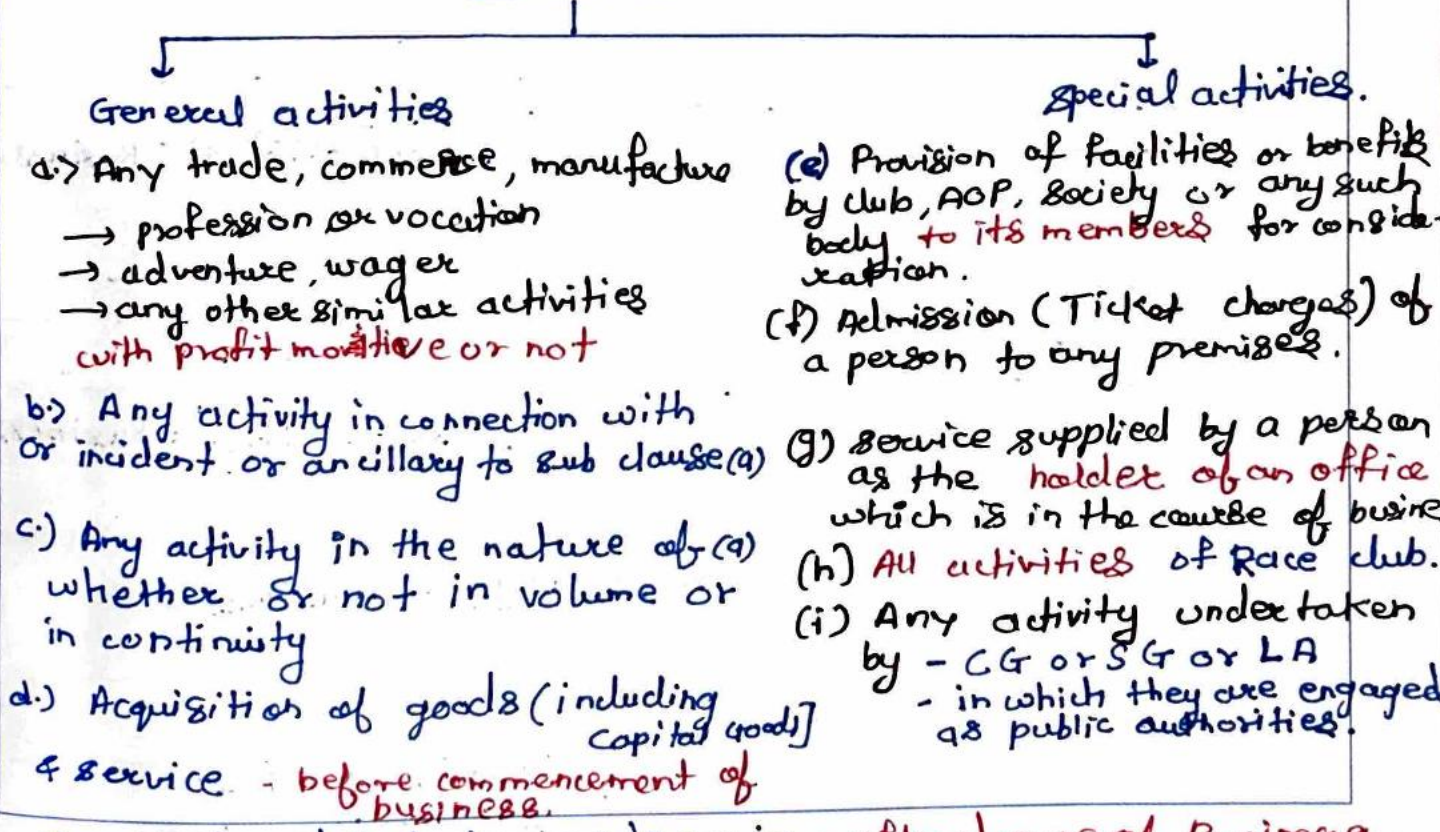 General activities
a.> Any trade, commerce, manufacture
→ profession or vocation
→ adventure, wager
→ any other similar activities
with profit motive or not
b.> Any activity in connection with
or incident or ancillary to sub clause (a)
c.) Any activity in the nature of (a)
whether or not in volume or
in continuity
d.) Acquisition of goods (including
Capital Goods]
& service - before commencement of
business.
Special activities.
(e) Provision of facilities or benefits
by club, AOP, Society or any such
body to its members for conside-
ration.
(f) Admission (Ticket charges) of
a person to any premises.
(g) service supplied by a person
as the holder of an office
which is in the course of busine
(h) All activities of Race club.
(i) Any activity undertaken
by - CG or SG or LA
- in which they are engaged
as public authorities.